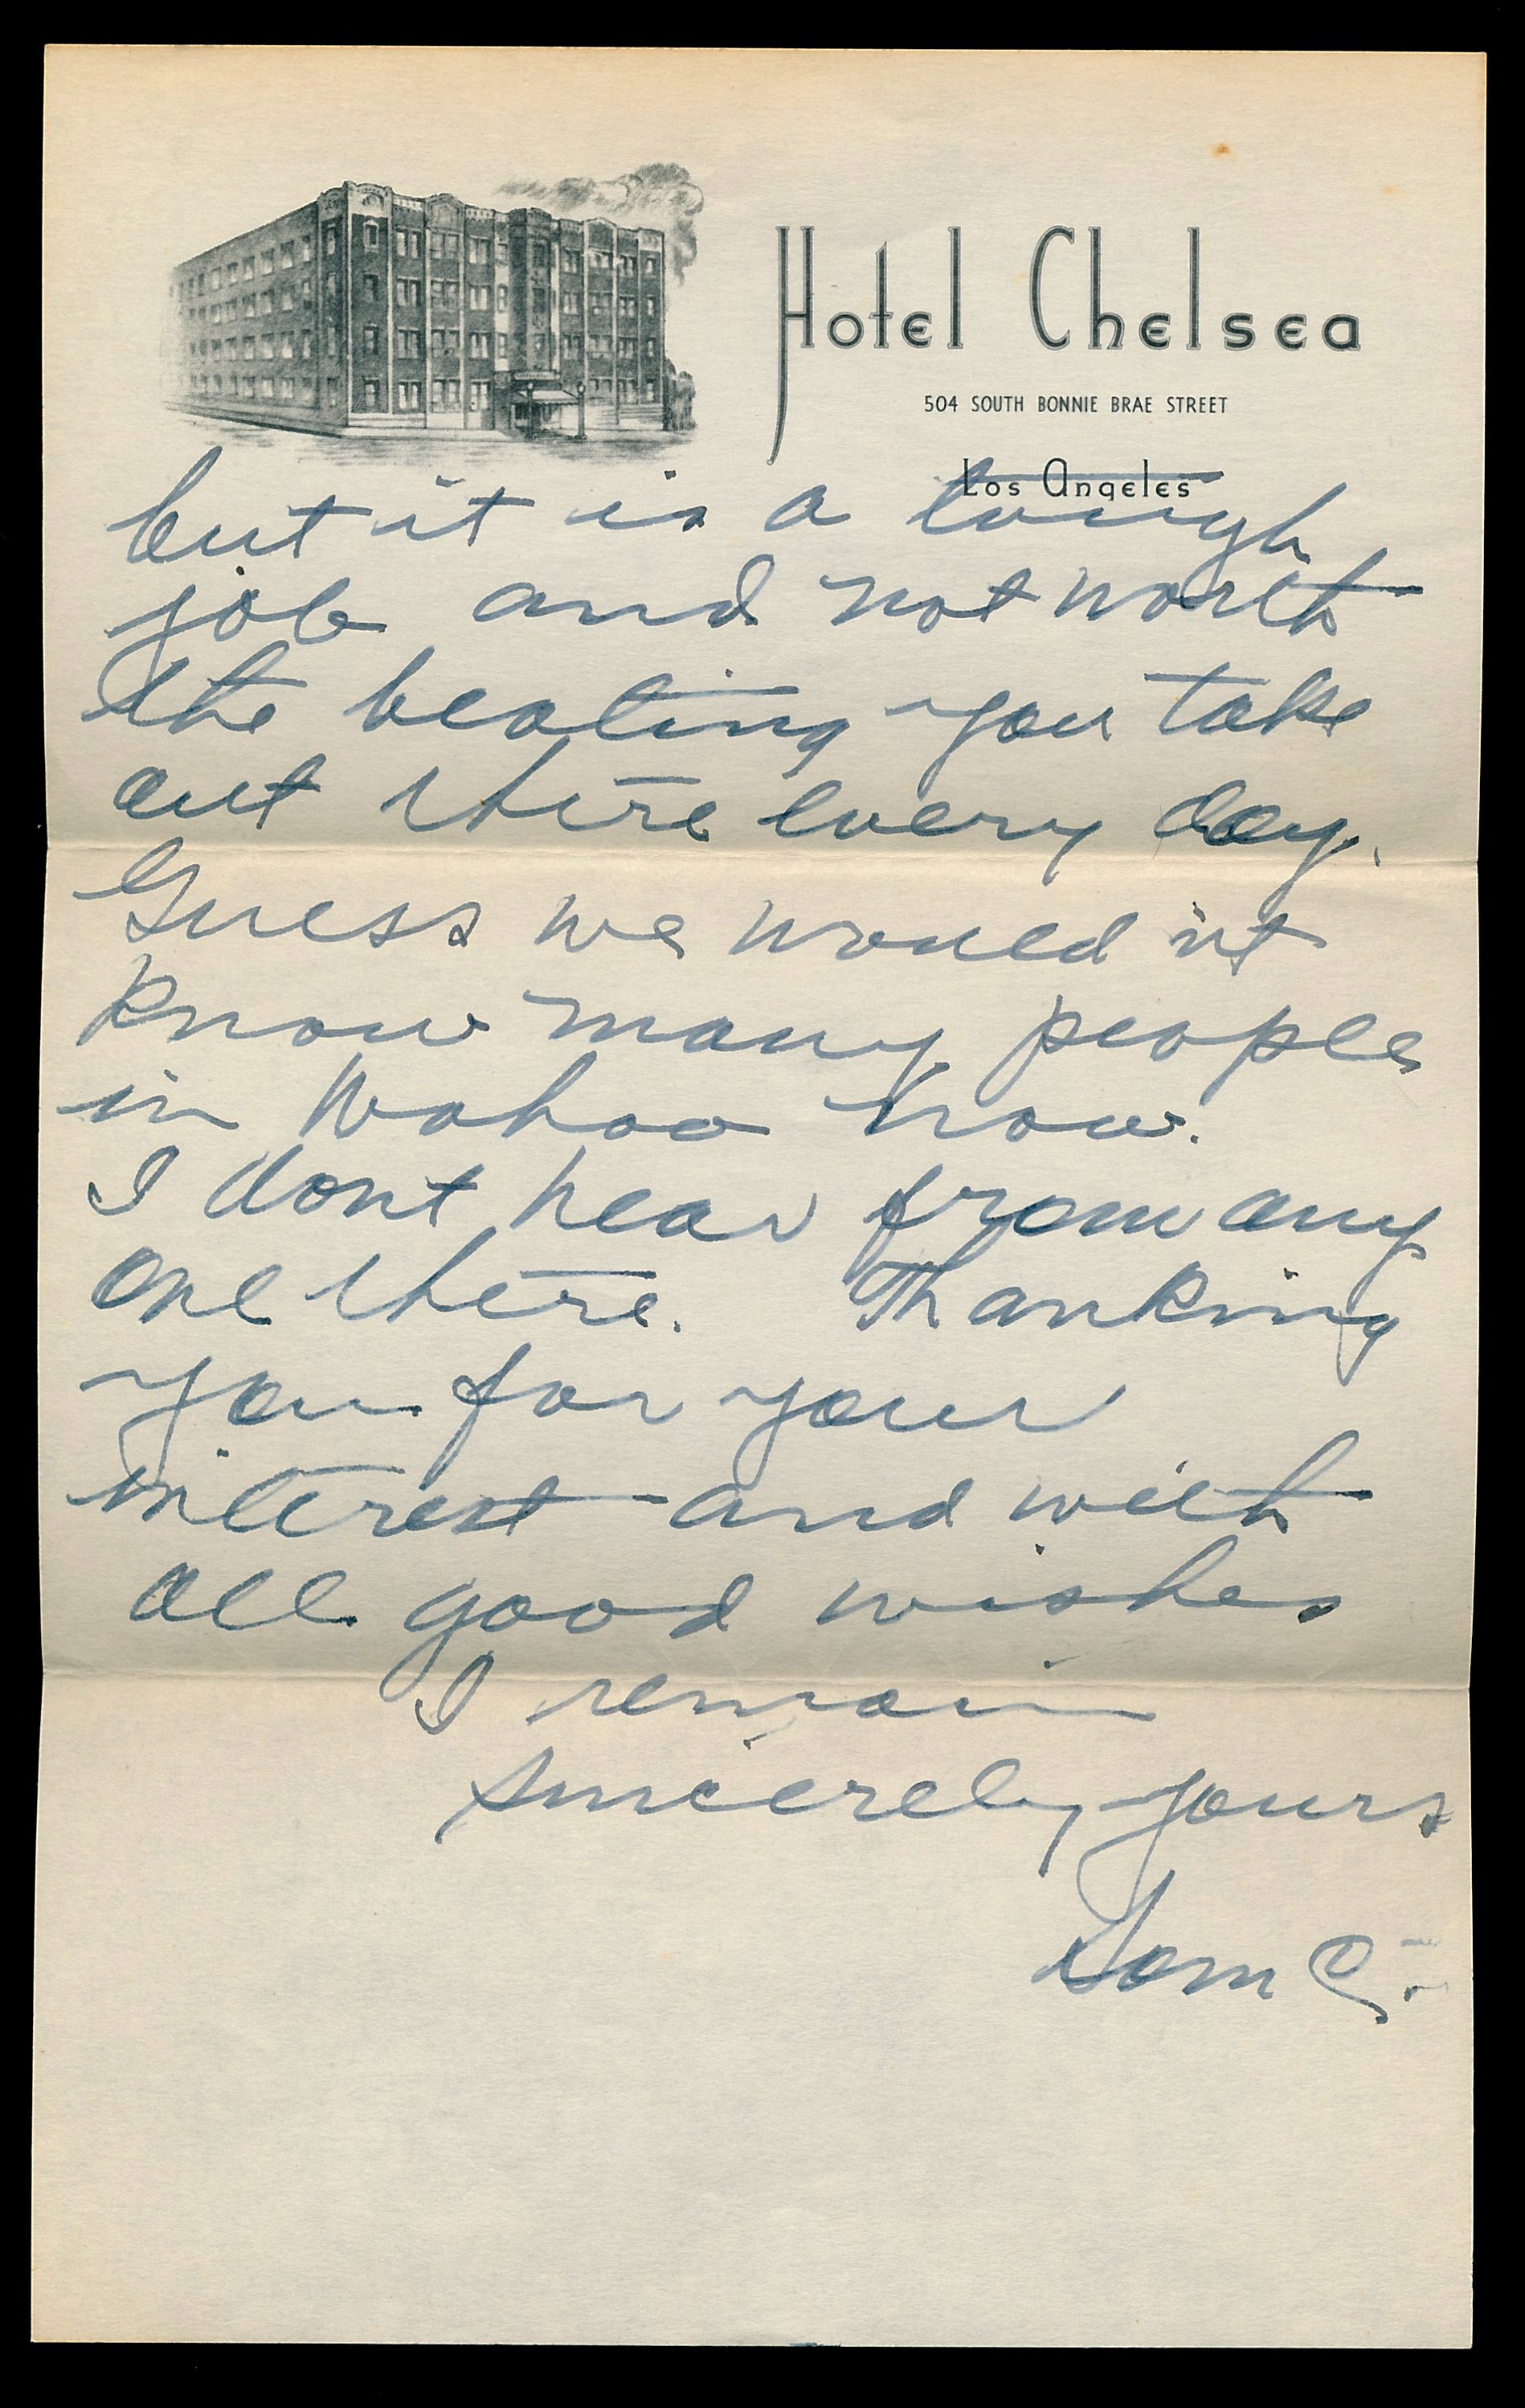 Hotel Chelsea
504 SOUTH BONNIE BRAE STREET
Los Angeles
but it is a tough
job and not worth
the beating you take
out there every day.
Guess we would nt
know many people
in Wahoo now.
I dont hear from any
one there. Thanking
you for your
interest and with
all good wishes
I remain
Sincerely yours
Sam C.